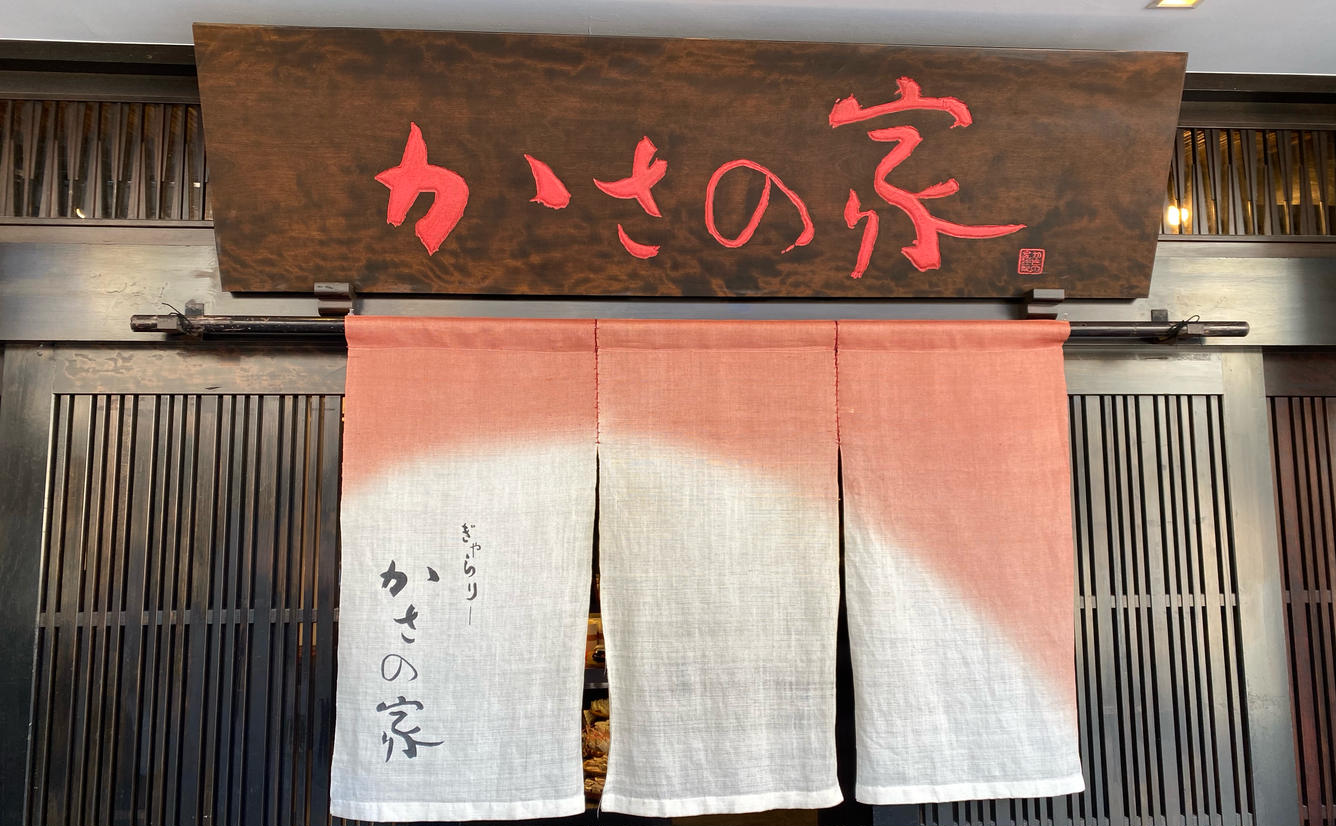 かさの家
ぎゃらりー
かさの家